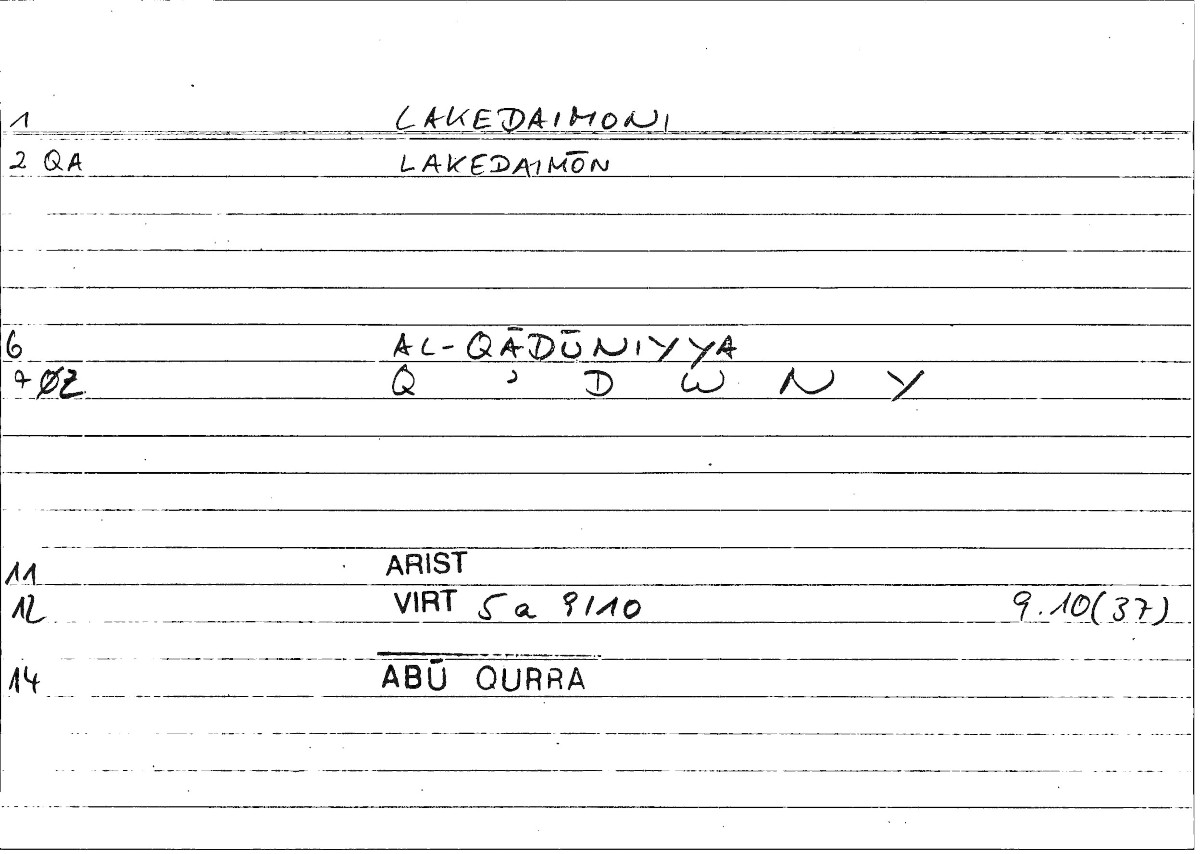 1 LAKEDAIMONI
2 QA LAKEDAIMŌN
6 AL-QĀDŪNIYYA
7 ØZ Q ʾ D W N Y
11 ARIST
12 VIRT 5 a 9/10 9.10(37)
14 ABŪ QURRA